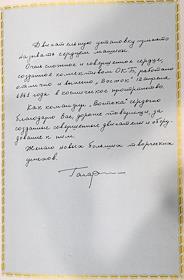 Двигательную установку принято
называть сердцем машины.
Очень сложное и совершенное сердце,
созданное коллективом ОКБ, работало
отлично и вынесло „Восток" 12 апреля
1961 года в космическое пространство.
Как командир „Востока" сердечно
благодарю Вас, дорогие товарищи, за
создание совершенных двигателей и обору-
дования к ним.
Желаю новых больших творческих
успехов.
Гагарин